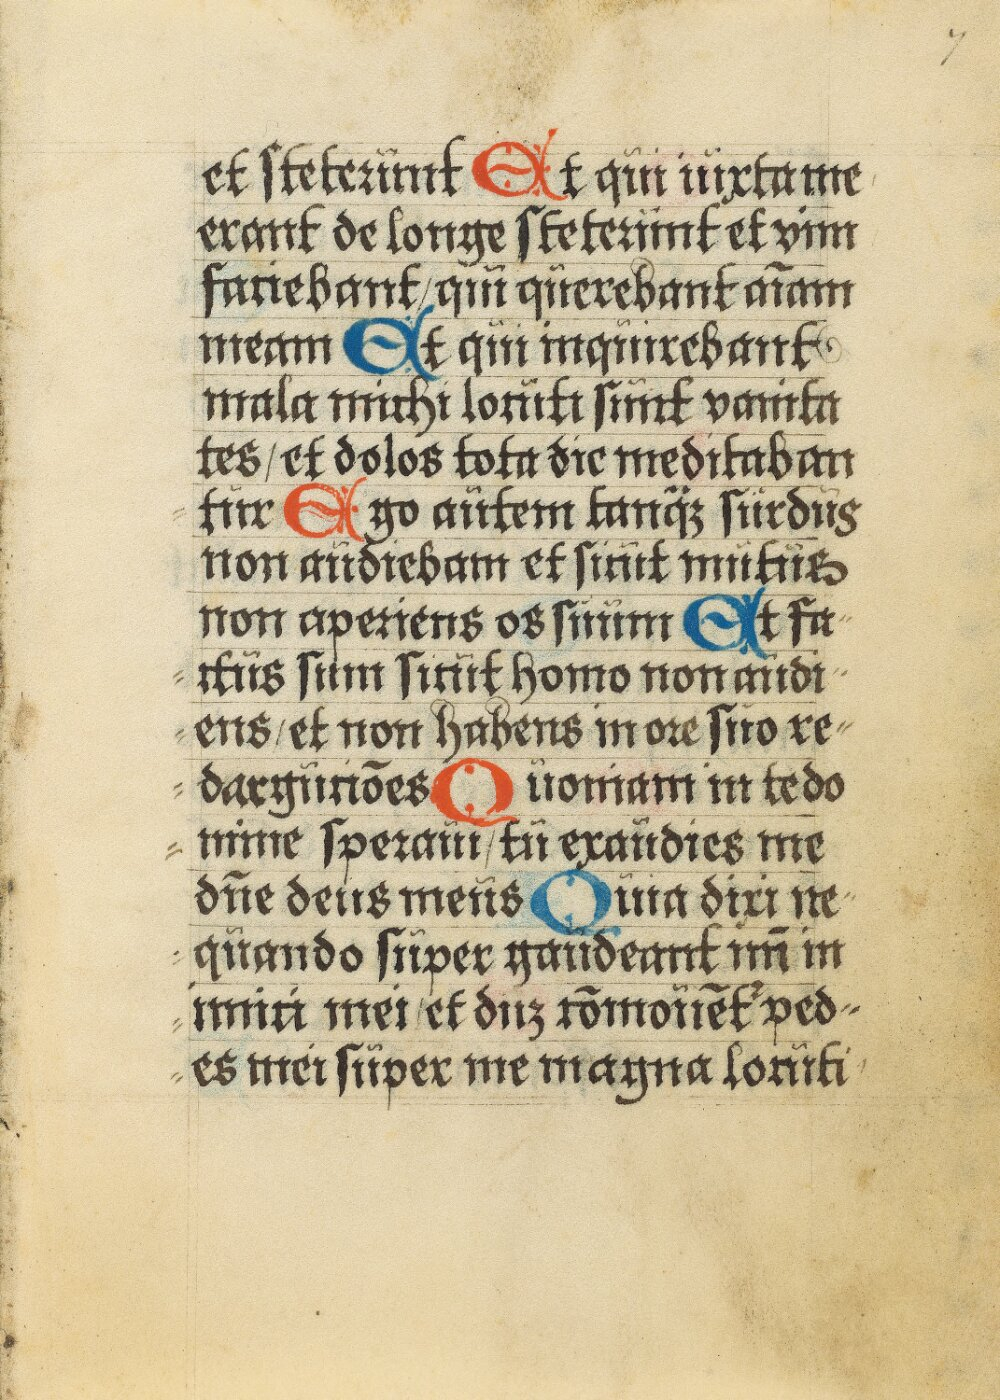 7
et steterunt Et qui iuxta me
erant de longe steterunt et vim
faciebant/qui querebant aīam
meam Et qui inquirebant
mala michi locuti sunt vanita
tes/et dolos tota die meditaban
tur Ego autem tanqȝ surdus
non audiebam et sicut mutus
non aperiens os suum Et fa-
ctus sum sicut homo non audi
ens/et non habens in ore suo re-
darguciōes Quoniam in te do
mine speraui/tu exaudies me
dn̄e deus meus Quia dixi ne-
quando super gaudeant mn̄ in
imici mei/et duȝ cōmouēt᷑ ped-
es mei super me magna locuti